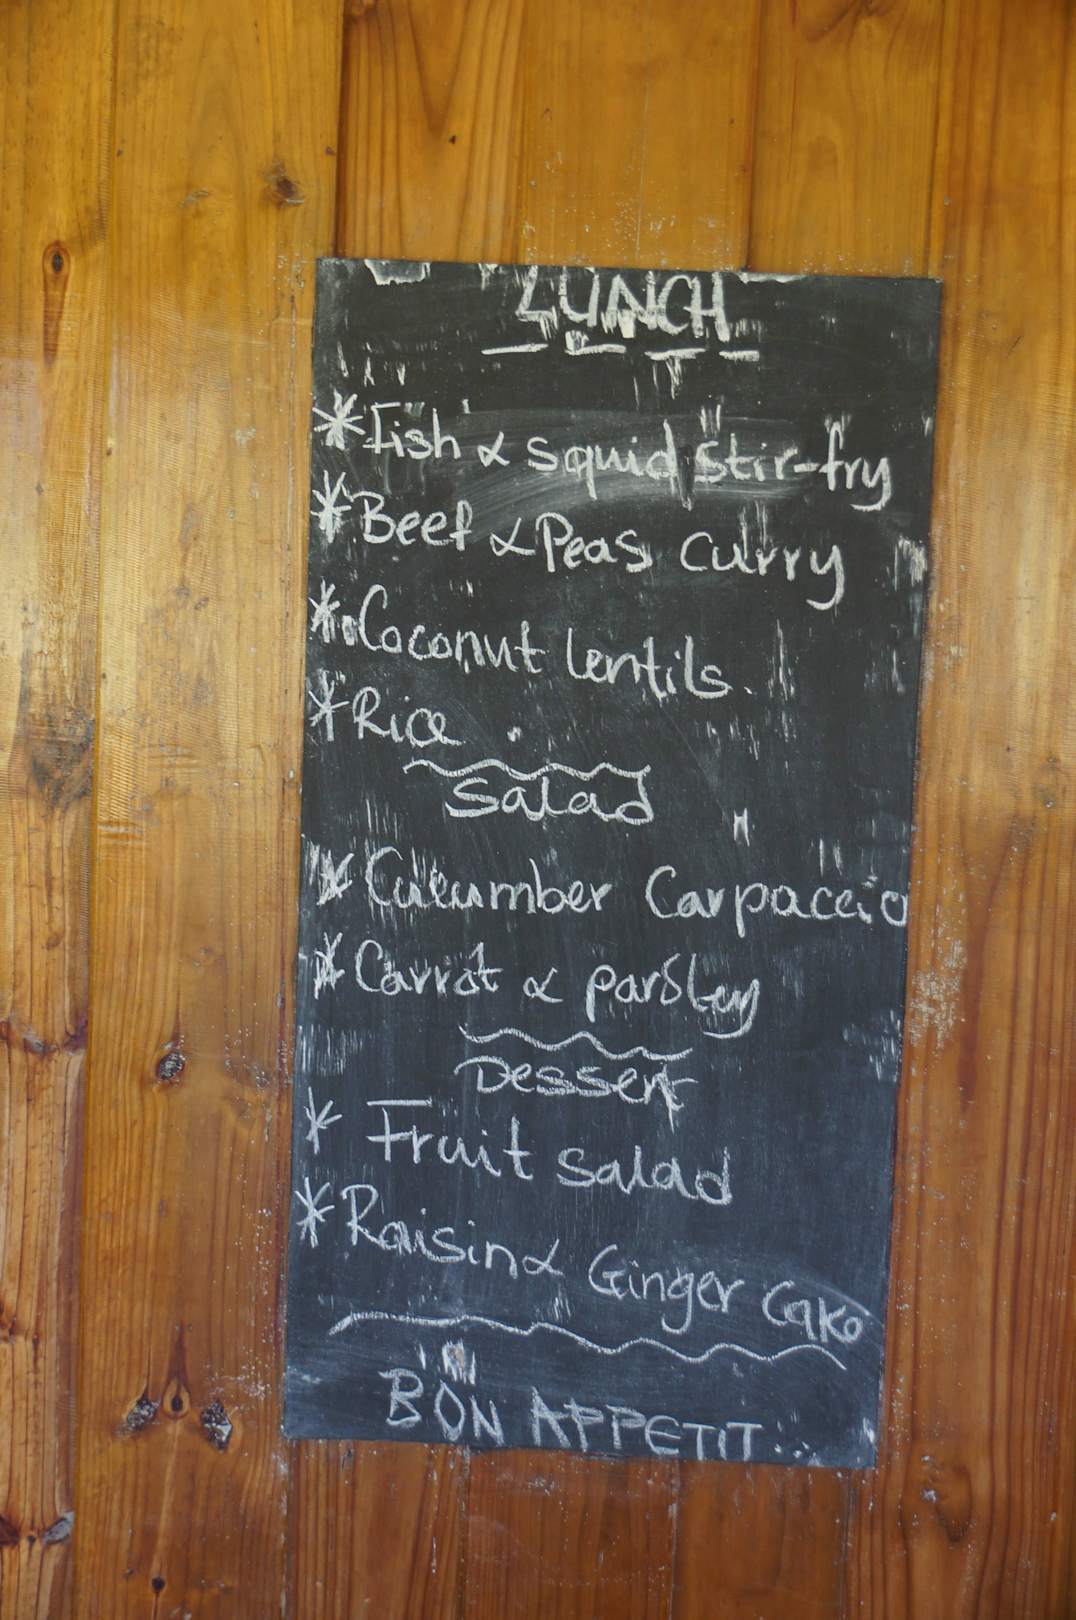 LUNCH
* Fish & squid stir-fry
* Beef & Peas curry
* Coconut lentils.
* Rice .
Salad
* Cucumber Carpaccio
* Carrot & parsley
Dessert
* Fruit salad
* Raisin & Ginger Cake
BON APPETIT...